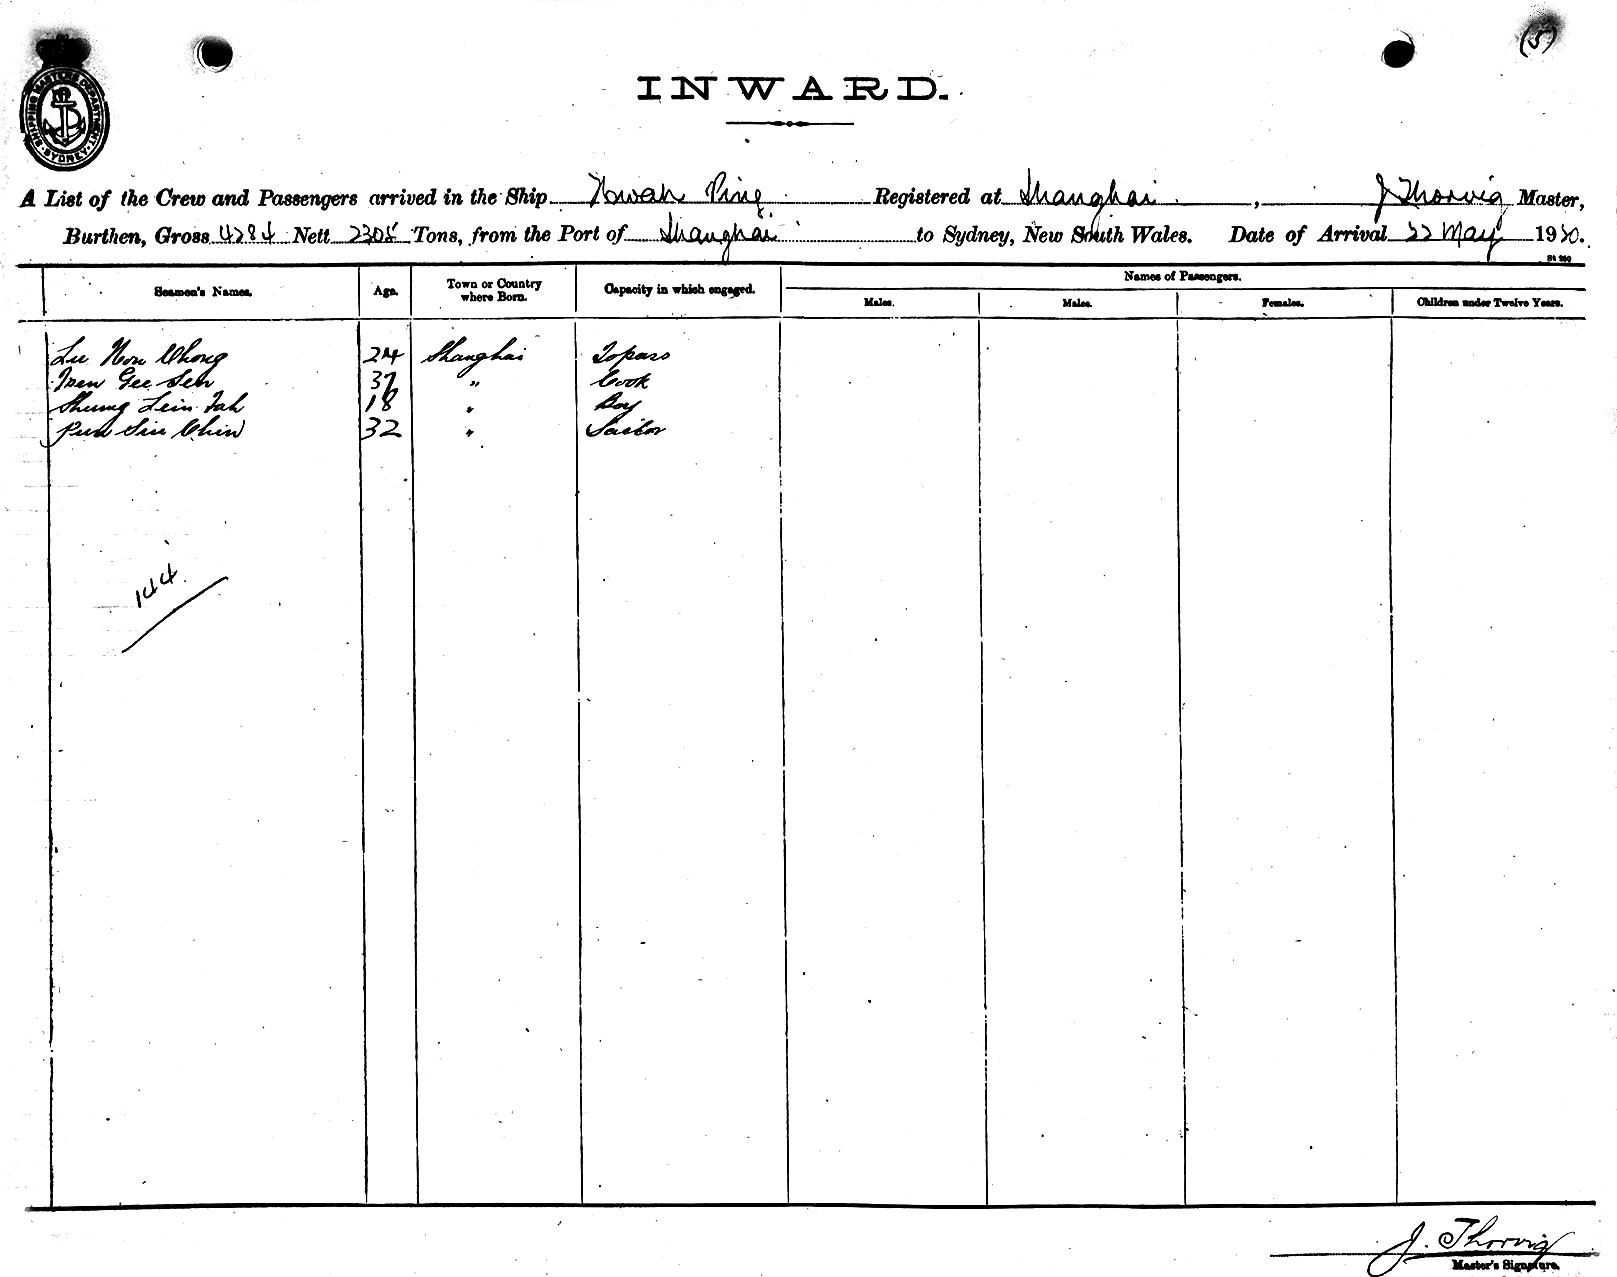 (5)
SHIPPING MASTERS DEPARTMENT
SYDNEY
INWARD.
A List of the Crew and Passengers arrived in the Ship Hwah Ping Registered at Shanghai, J Thorvig Master,
Burthen, Gross 4284 Nett 2305 Tons, from the Port of Shanghai to Sydney, New South Wales. Date of Arrival 22 May 1920.
St 280
Names of Passengers.
Seamen's Names. Age. Town or Country where Born. Capacity in which engaged. Males. Males. Females. Children under Twelve Years.
Lu Chong 24 Shanghai Topaso
Gee Sen 37 " Cook
Shung Lein Tah 18 " Boy
Sin Chin 32 " Sailor
144.
J. Thorvig
Master's Signature.